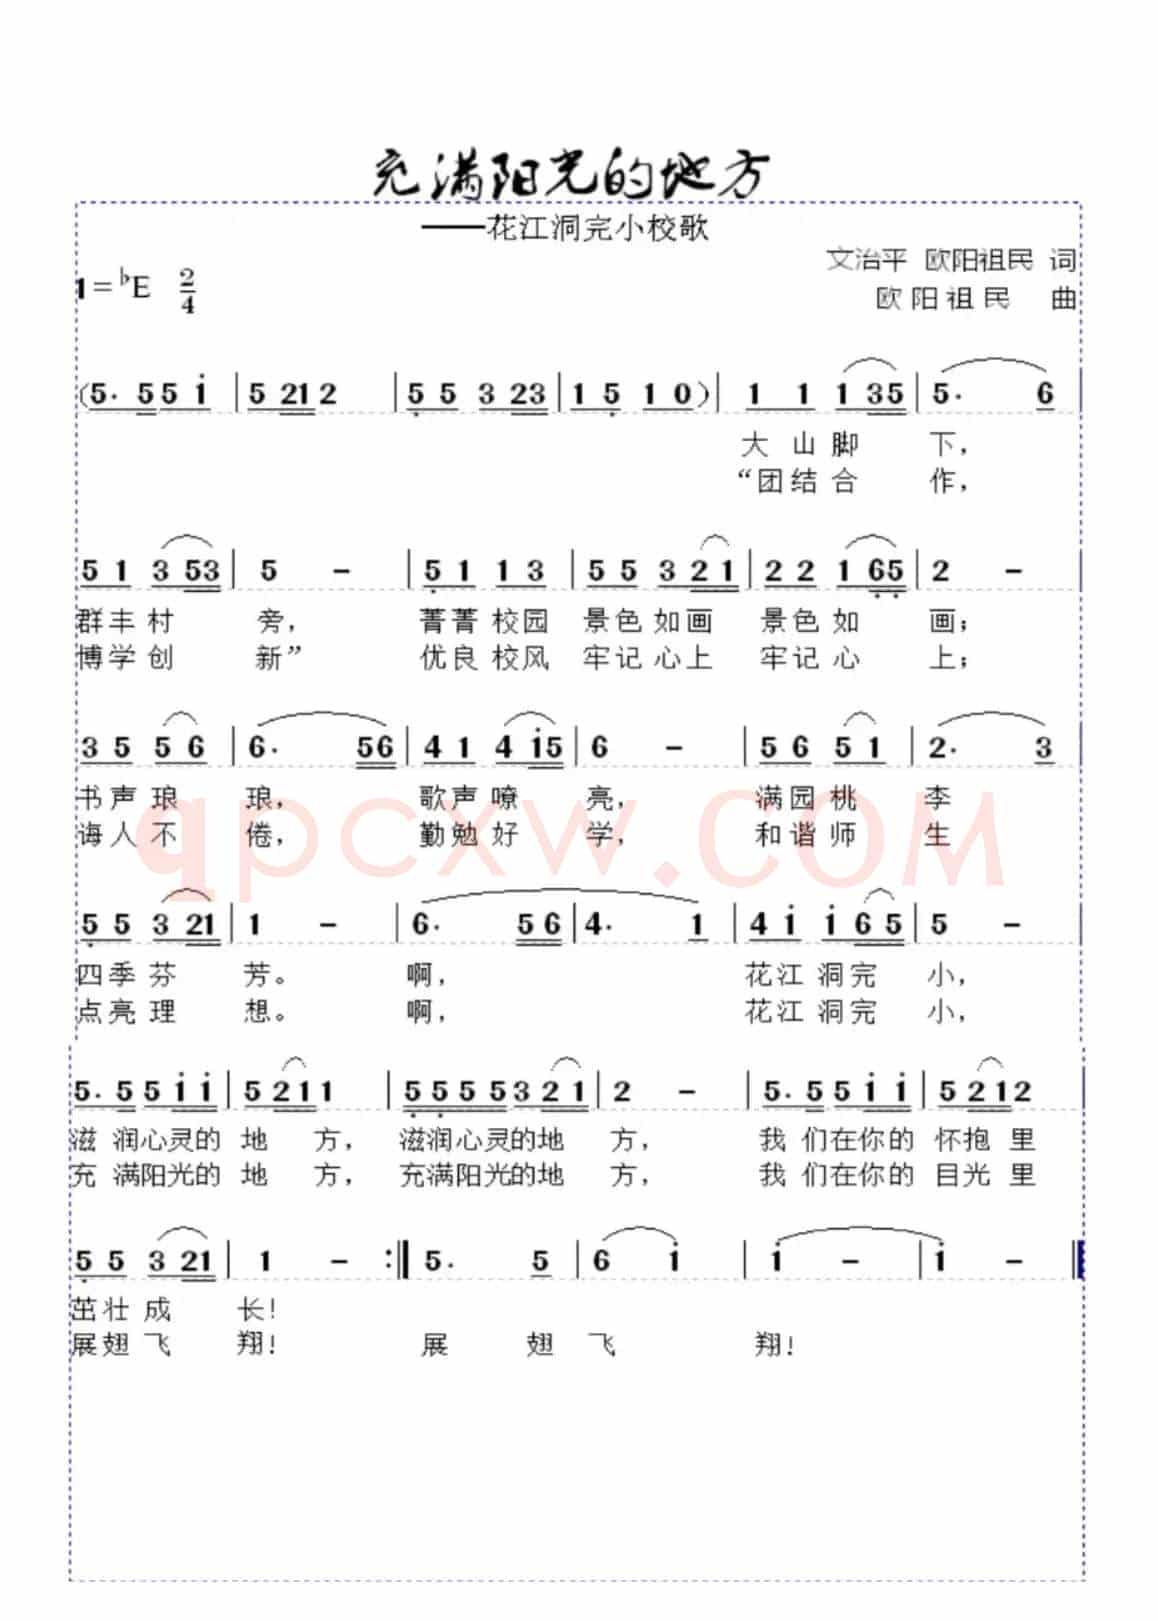 充满阳光的地方
——花江洞完小校歌
文治平 欧阳祖民 词
1=♭E 2/4
欧阳祖民 曲
(5. 5 5 i | 5 21 2 | 5 5 3 23 | 1 5 1 0) | 1 1 1 35 | 5. 6
大山脚 下,
“团结合 作,
5 1 3 53 | 5 - | 5 1 1 3 | 5 5 3 21 | 2 2 1 65 | 2 -
群丰村 旁, 菁菁校园 景色如画 景色如 画;
博学创 新” 优良校风 牢记心上 牢记心 上;
3 5 5 6 | 6. 56 | 4 1 4 i5 | 6 - | 5 6 5 1 | 2. 3
书声琅 琅, 歌声嘹 亮, 满园桃 李
诲人不 倦, 勤勉好 学, 和谐师 生
qpcxw.COM
5 5 3 21 | 1 - | 6. 56 | 4. 1 | 4 i i 65 | 5 -
四季芬 芳。 啊, 花江洞完 小,
点亮理 想。 啊, 花江洞完 小,
5. 5 5 i i | 5 21 1 | 5 5 5 5 3 21 | 2 - | 5. 5 5 i i | 5 21 2
滋润心灵的 地 方, 滋润心灵的地 方, 我们在你的 怀抱里
充满阳光的 地 方, 充满阳光的地 方, 我们在你的 目光里
5 5 3 21 | 1 - :‖ 5. 5 | 6 i | i - | i - ‖
茁壮成 长!
展翅飞 翔! 展 翅 飞 翔!